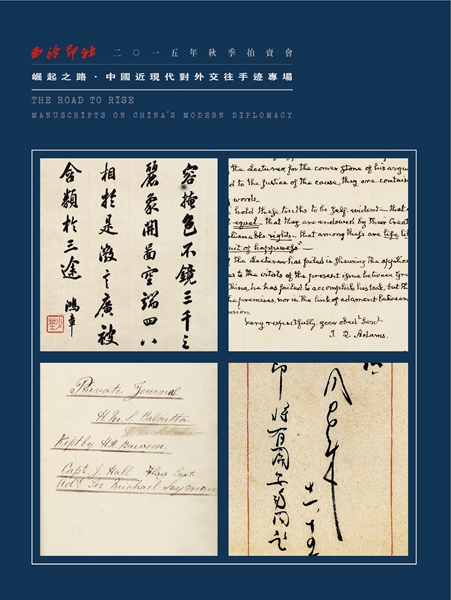 西泠印社 二〇一五年秋季拍賣會
崛起之路·中國近現代對外交往手迹專場
THE ROAD TO RISE
MANUSCRIPTS ON CHINA'S MODERN DIPLOMACY
容掩色不鏡三千之
麗象開圖空端四八
相於是微言廣被
含類於三途 鴻章
the Lecturer, for the corner stone of his argu
d to the justice of the cause, they are contain
words.
hold these truths to be self evident – that
equal – that they are endowed by their Creat
lienable rights – that among these are life, li
uit of happiness" –
the Lecturer has failed in shewing the applica
es to the vitals of the present issue between Gre
China, he has failed to accomplish his task, but th
the premises, nor in the lack of adamant between
usion.
Very respectfully, your Obedt Servt
J. Q. Adams.
Private Journal
H.M.S. Calcutta
Kept by H.R.
Capt. J. Hall Flag Capt.
Adl. Sir Michael Seymour
十一、十五